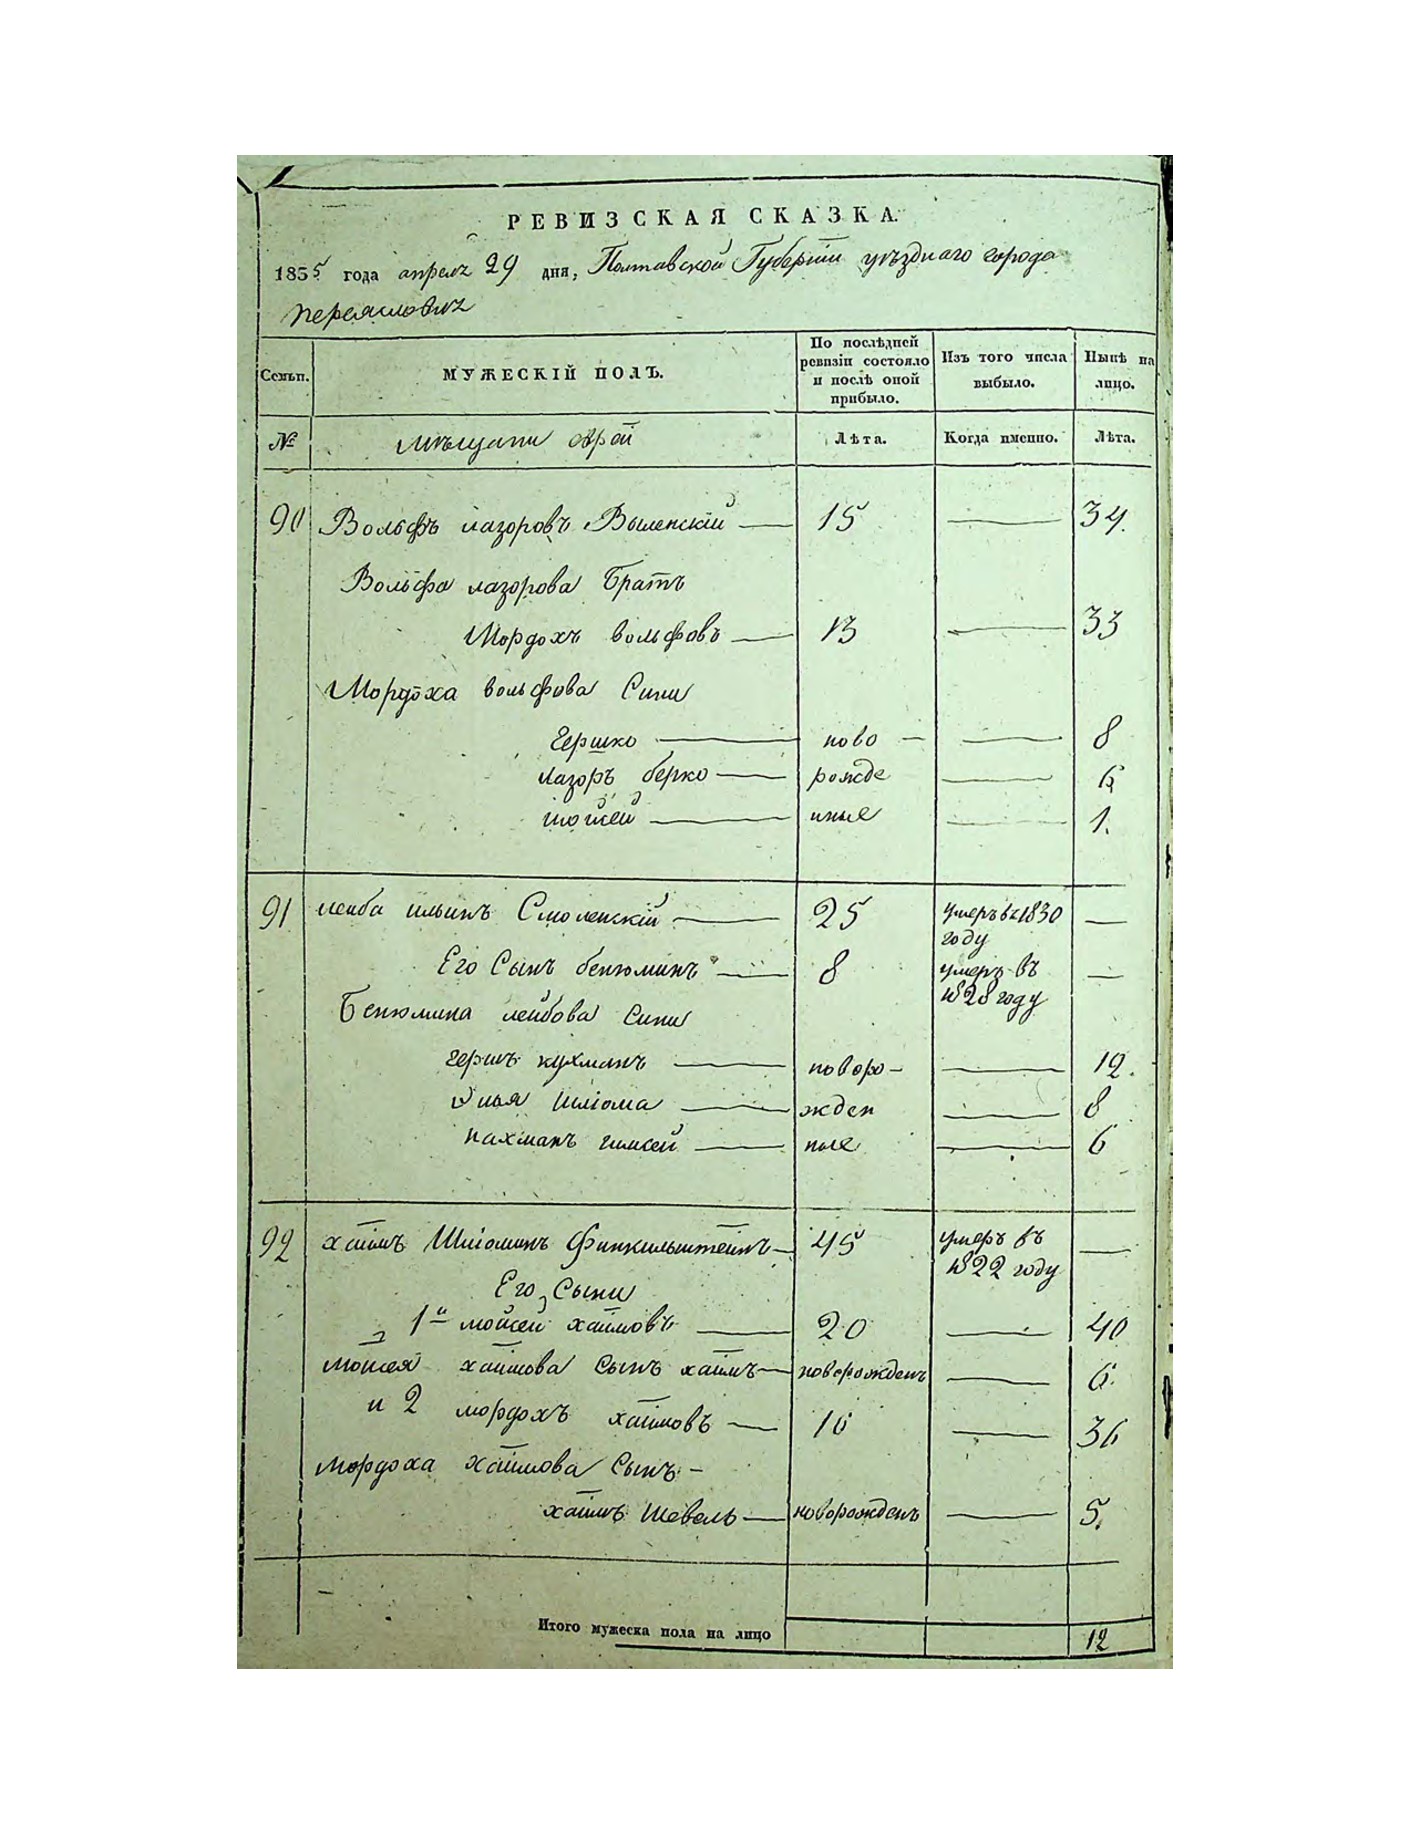 РЕВИЗСКАЯ СКАЗКА.
1835 года апреля 29 дня, Полтавской Губернїи уѣзднаго города
переяславля
Семьи. МУЖЕСКІЙ ПОЛЪ. По послѣдней ревизіи состояло и послѣ оной прибыло. Изъ того числа выбыло. Нынѣ на лицо.
№ Мѣщани Лѣта. Когда именно. Лѣта.
90 Вольфъ лазоровъ Виленскїй — 15 — 34.
Вольфа лазорова Братъ
Мордохъ вольфовъ — 13 — 33
Мордоха вольфова Сини
гершко — ново — — 8
лазоръ берко — рожде — 6
мойсей — нные — 1.
91 лейба ильинъ Смоленскїй — 25 умеръ въ 1830 году —
Его Сынъ бенюминъ — 8 умеръ въ 1828 году —
Бенюмина лейбова Сини
гершъ нухманъ — новоро- — 12.
илья шліома — жден — 8
нахманъ — ные — 6
92 хаимъ Шліоминъ Финкильштеинъ — 45 умеръ въ 1822 году —
Его Сыни
1й мойсей хаимовъ — 20 — 40
мойсея хаимова Сынъ хаимъ — новорожденъ — 6.
и 2 мордохъ хаимовъ — 16 — 36
Мордоха хаимова Сынъ —
хаимъ шевель — новорожденъ — 5.
Итого мужеска пола на лицо 12